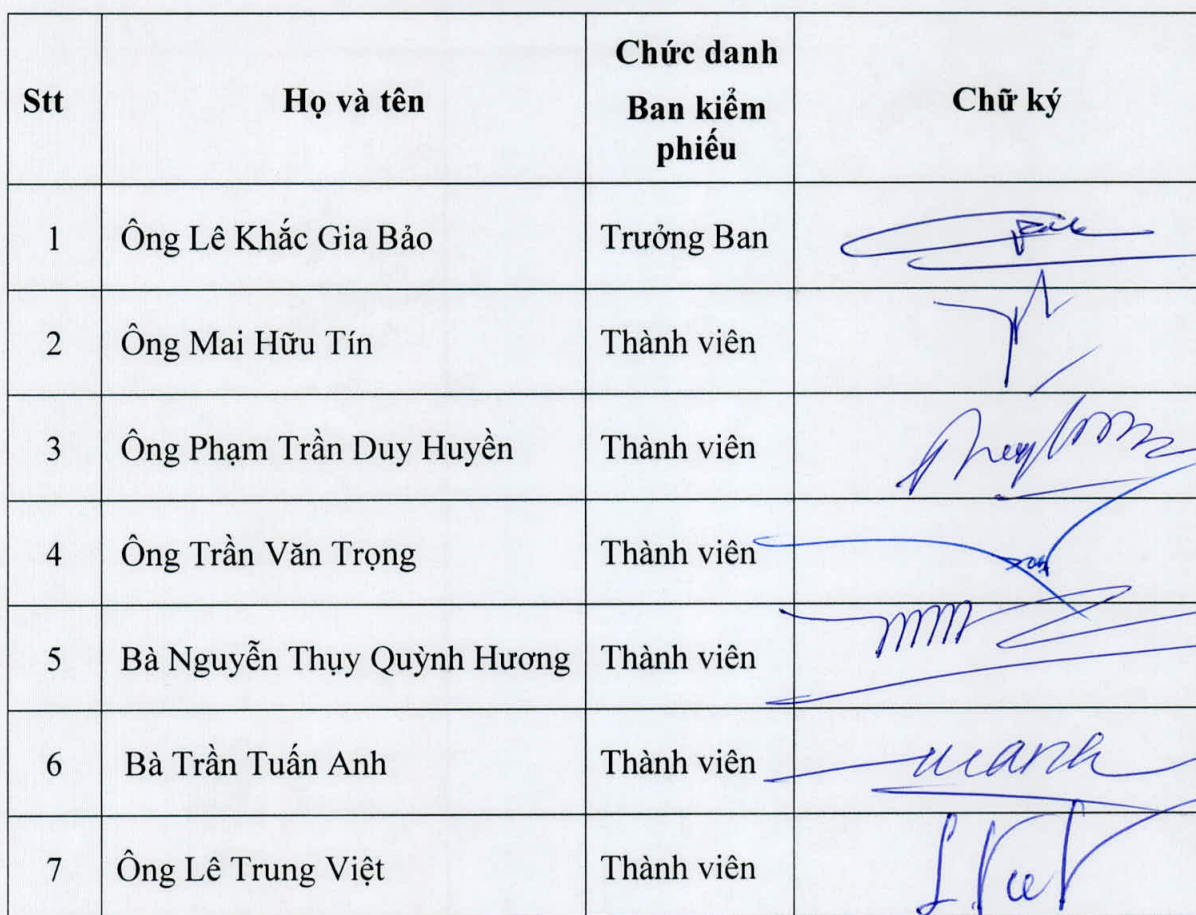 Stt Họ và tên Chức danh Ban kiểm phiếu Chữ ký
1 Ông Lê Khắc Gia Bảo Trưởng Ban
2 Ông Mai Hữu Tín Thành viên
3 Ông Phạm Trần Duy Huyền Thành viên
4 Ông Trần Văn Trọng Thành viên
5 Bà Nguyễn Thụy Quỳnh Hương Thành viên
6 Bà Trần Tuấn Anh Thành viên
7 Ông Lê Trung Việt Thành viên